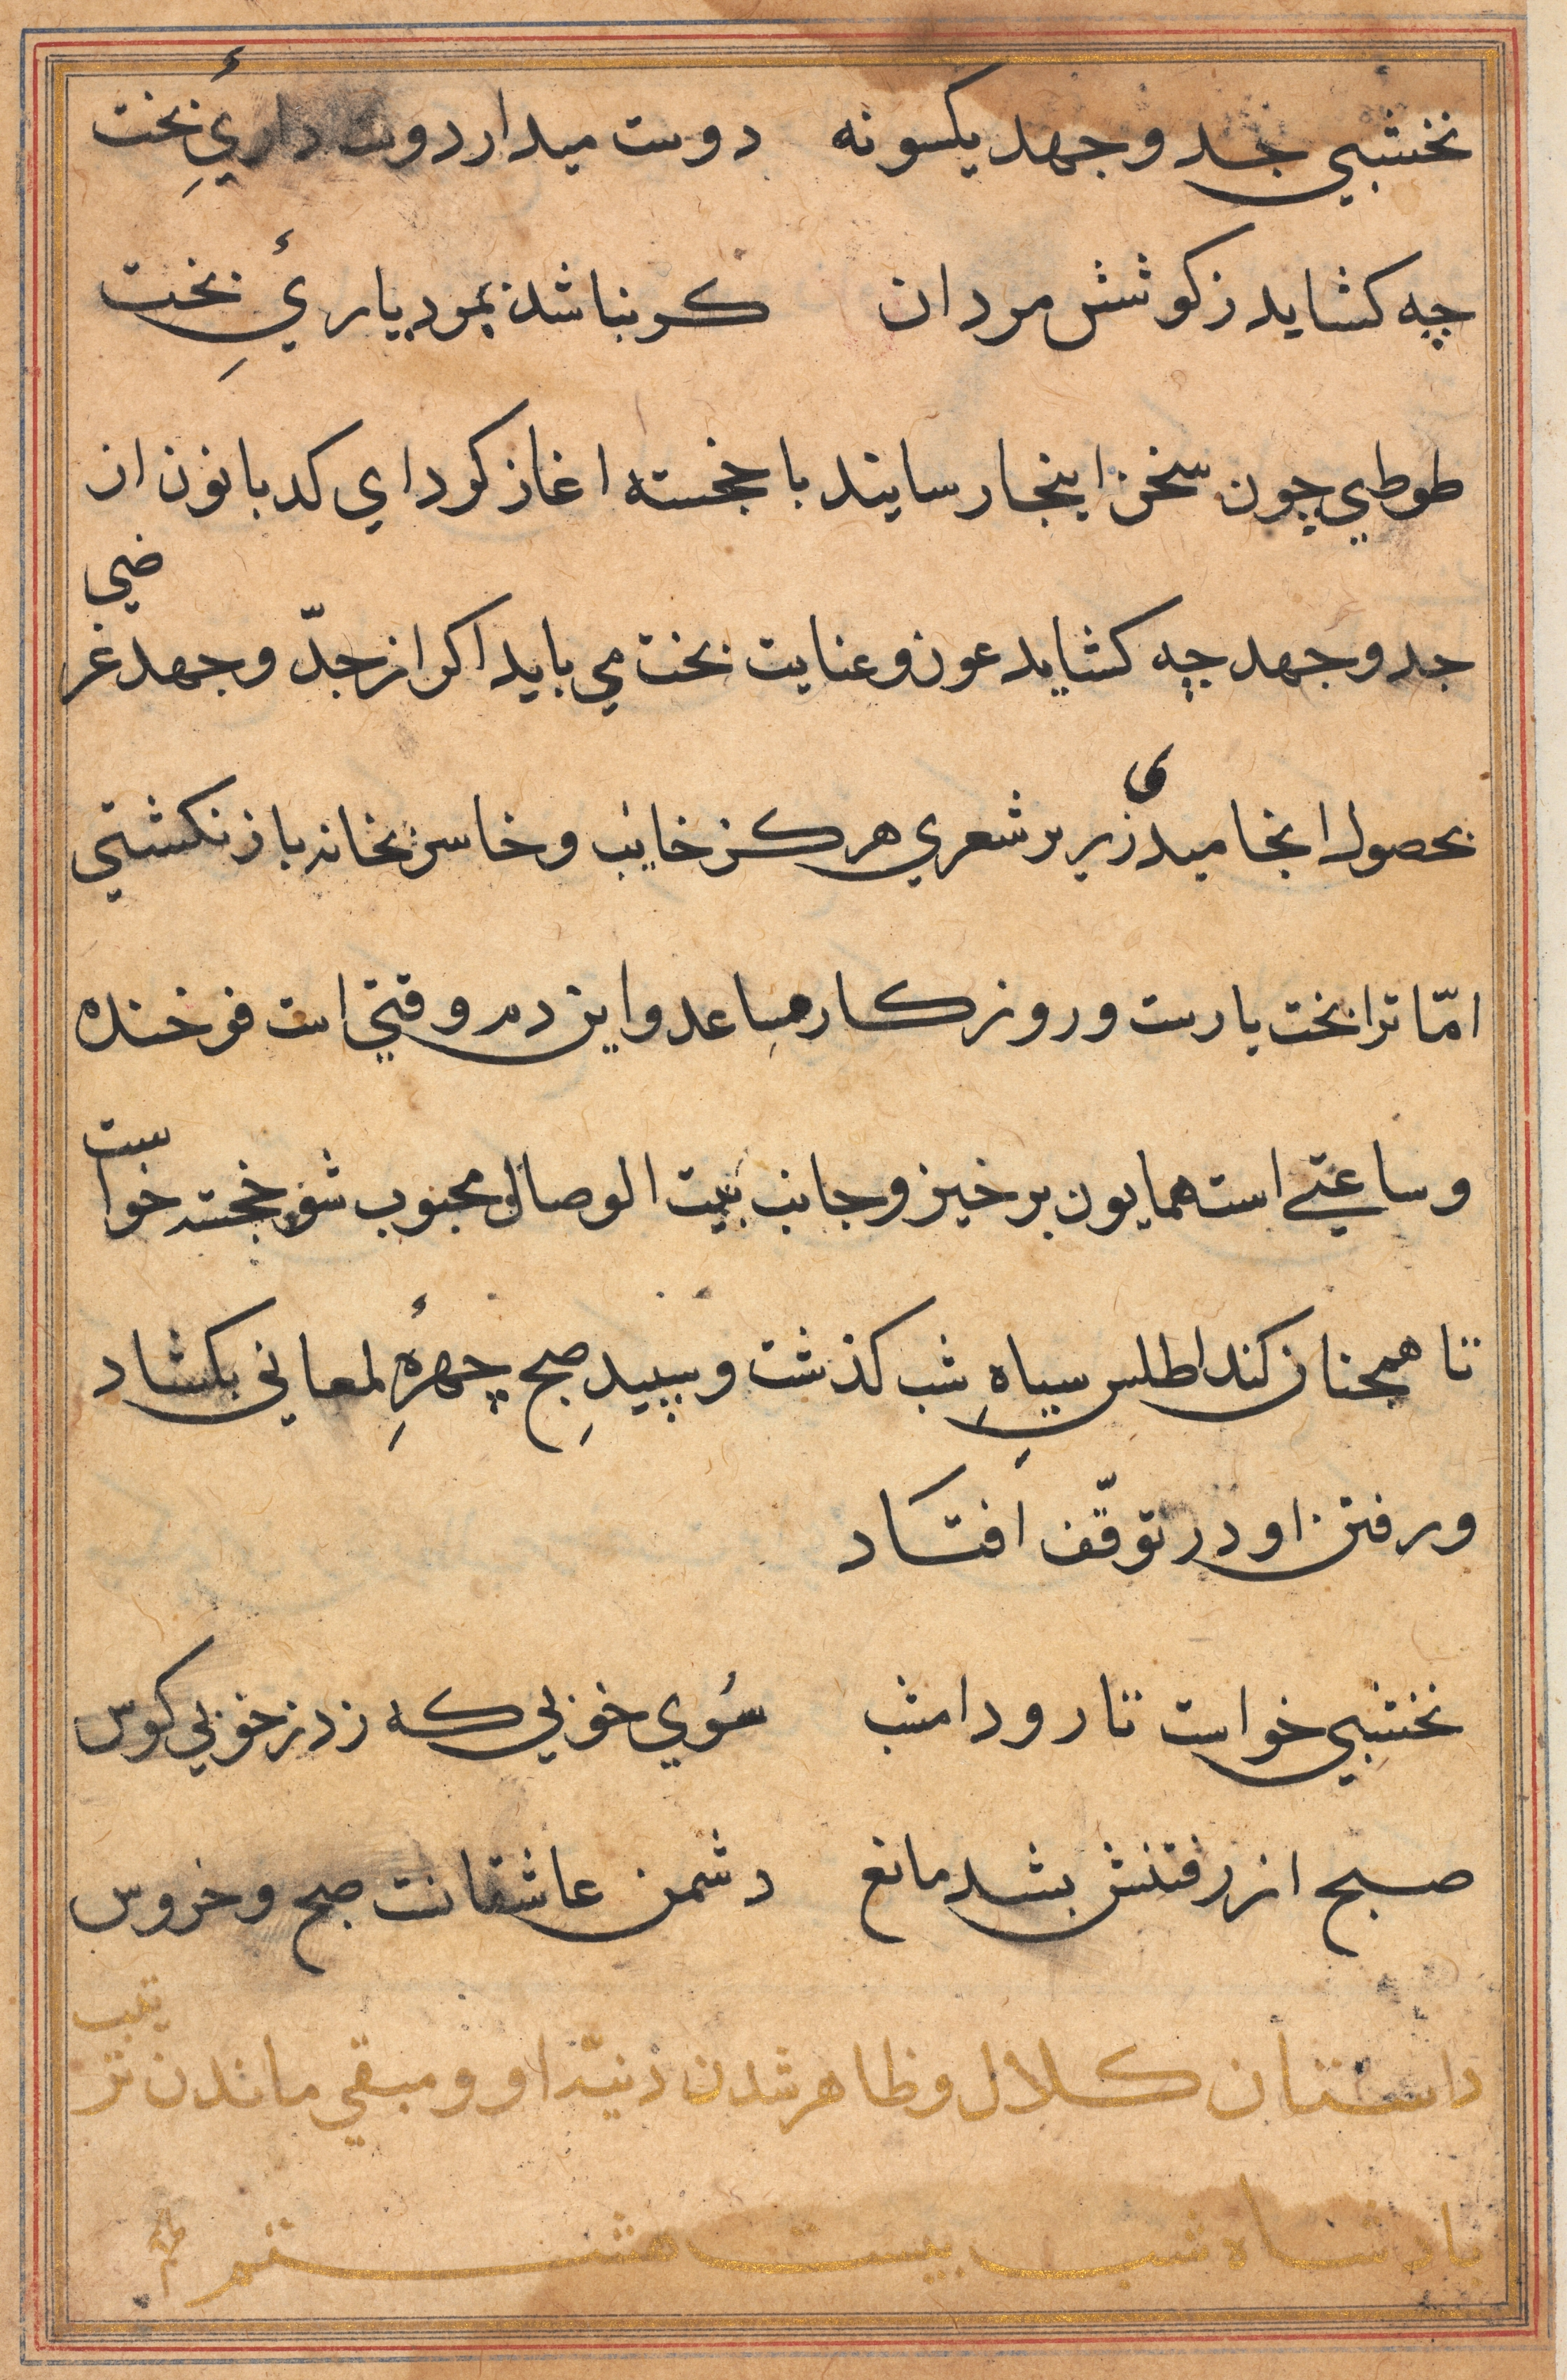 نخشبي جد و جهد يكسو نه دوست ميدار دوست دارئِ بخت
چه كشايد ز كوشش مردان كر نباشد بمرد يارئِ بخت
طوطي چون سخن اينجا رسانيد با خجسته اغاز كرد اي كدبانو ن از
جد و جهد چه كشايد عون و عنايت بخت مي بايد اكر از جدّ و جهد غرضي
بحصول انجاميدي زير بر شعري هركز خايب و خاسر بخانه باز نكشتي
امّا ترا بخت يارست و روزكار مساعد و اين دم وقتي است فرخنده
و ساعتي است همايون برخيز و جانب بيت الوصال محبوب شو خجسته خواست
تا همچنان كند اطلسِ سياهِ شب كذشت و سپيدِ صبح چهرهِٔ لمعاني بكشاد
و رفتن او در توقّف افتاد
نخشبي خواست تا رود امشب سُوي خوبي كه زد ز خوبي كوس
صبح از رفتنش بشد مانع دشمن عاشقانت صبح و خروس
داستان كلال و ظاهر شدن دنيّت او و مبقي ماندن ترتيب
پادشاه شب بيست هشتم